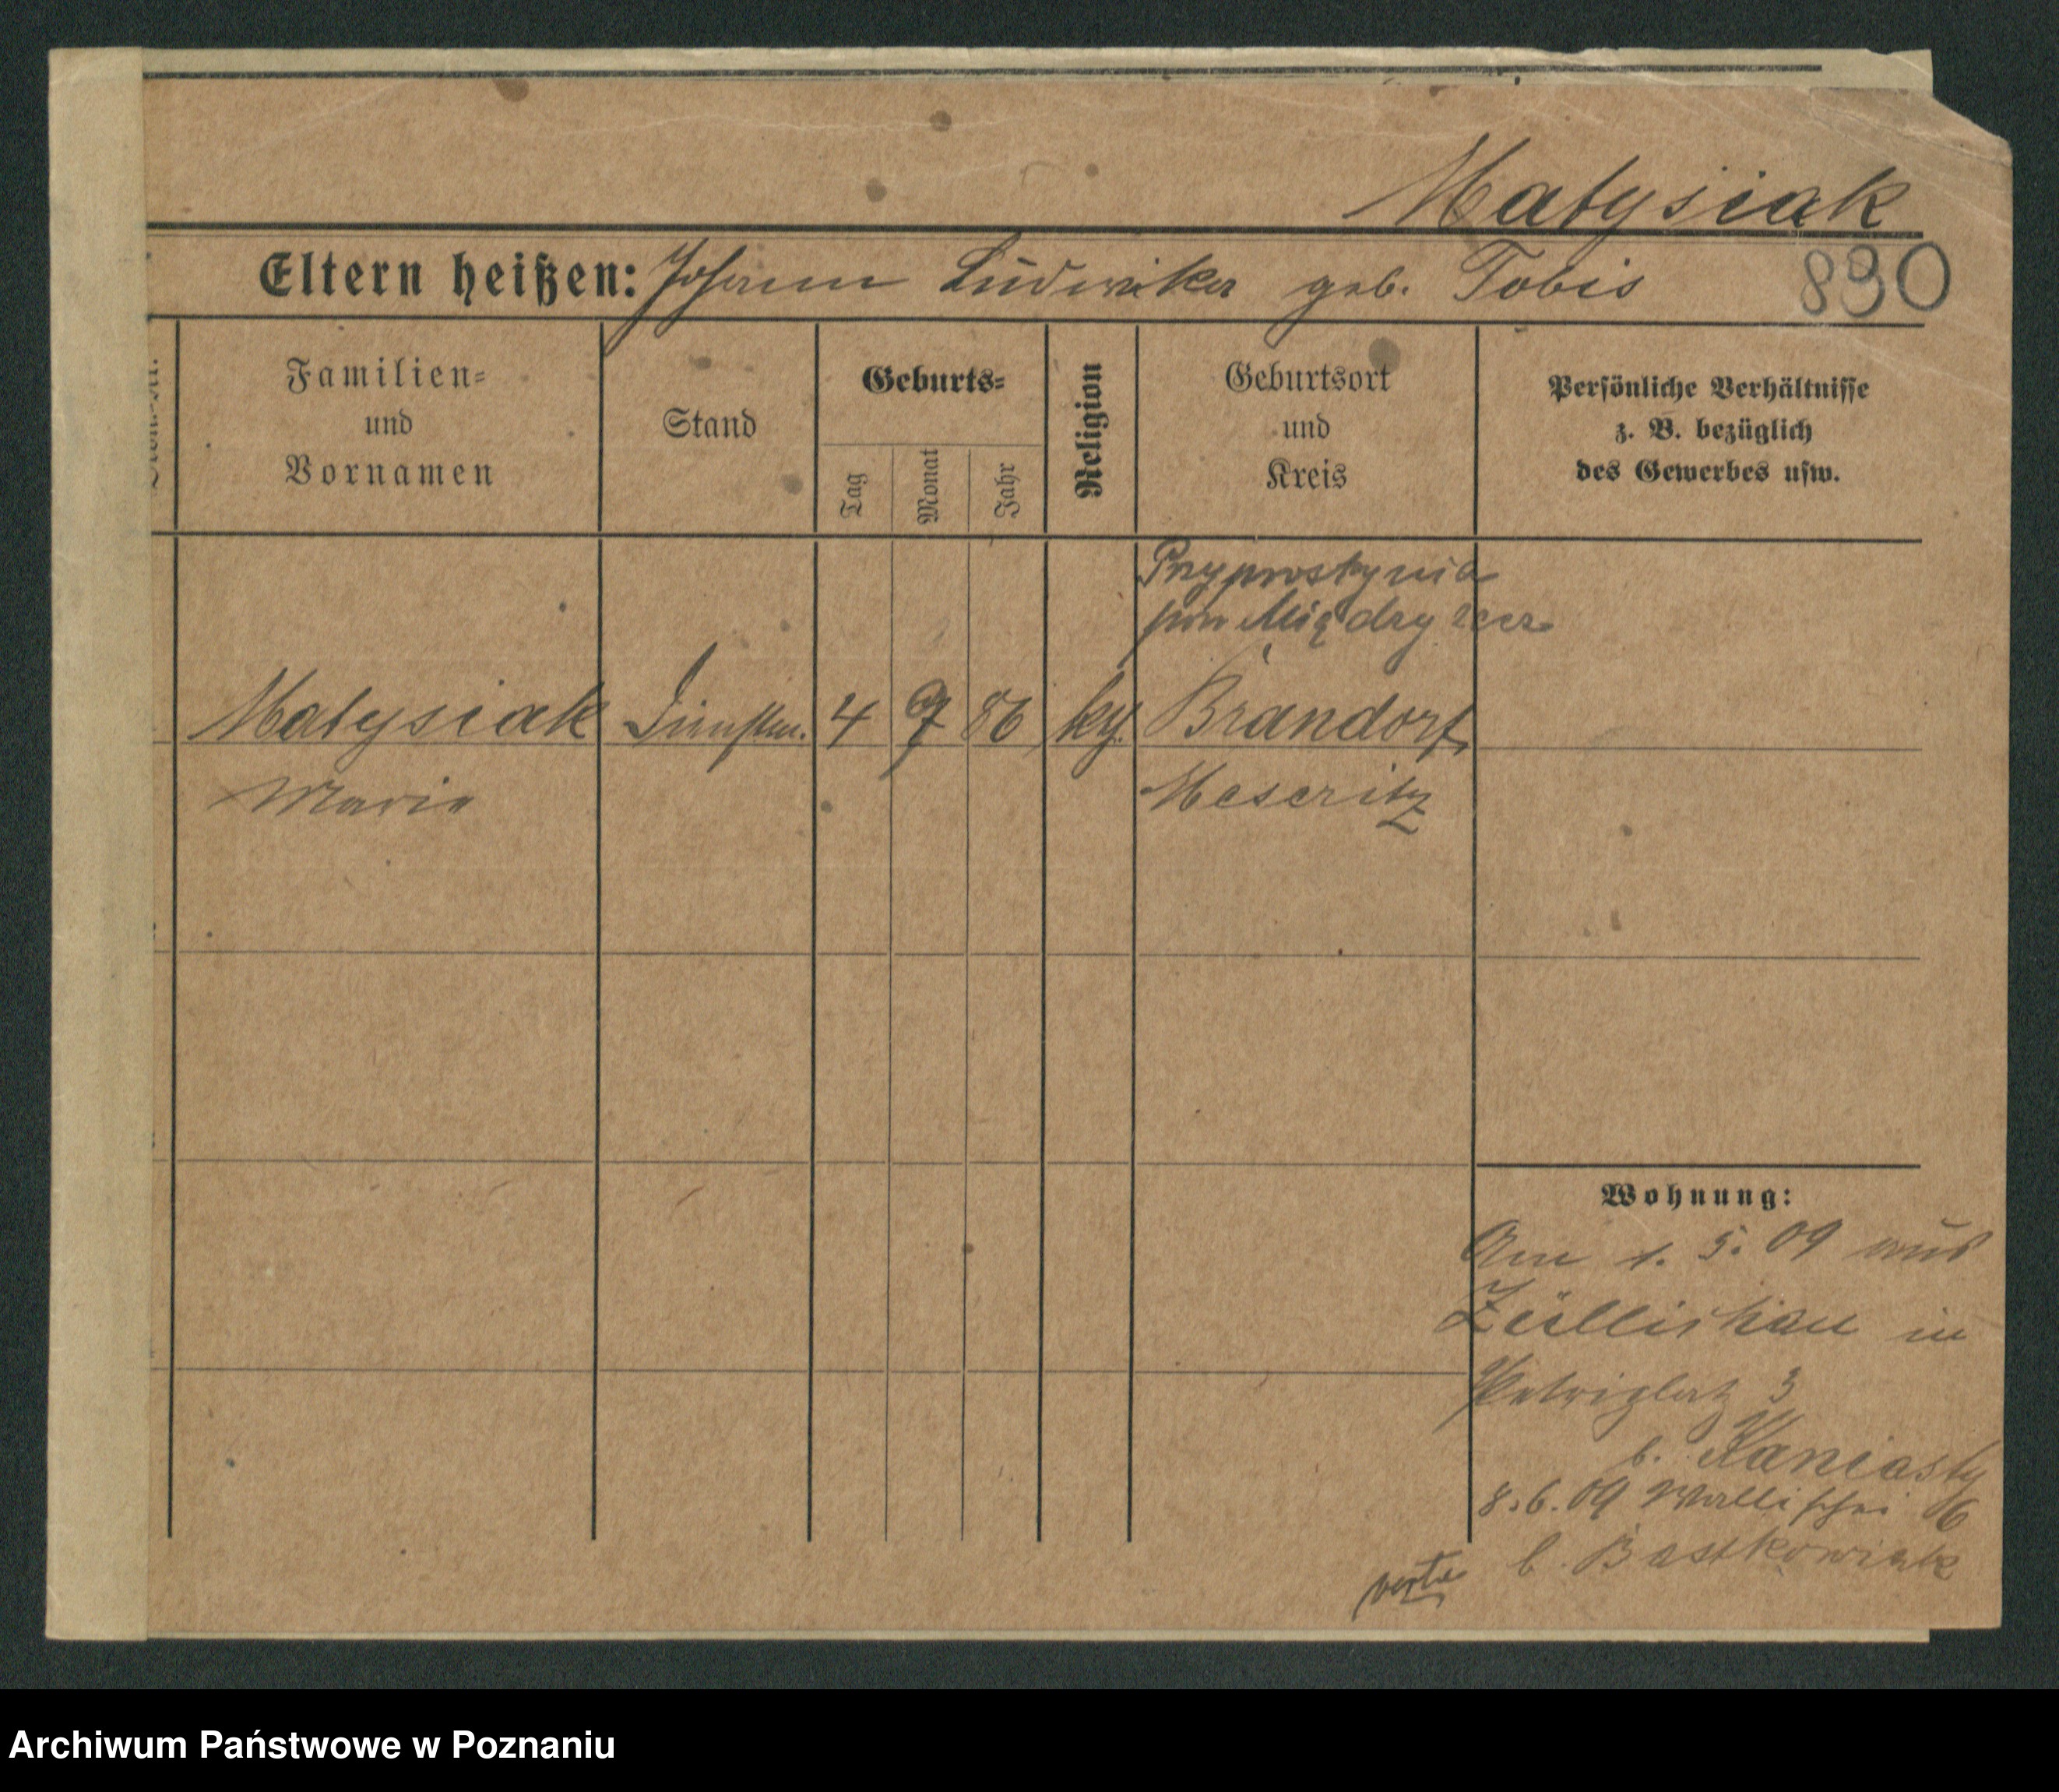 Matysiak
Eltern heißen: Johann Ludwika geb. Tobis 890
Familien=
und
Vornamen
Stand
Geburts=
Tag
Monat
Jahr
Religion
Geburtsort
und
Kreis
Persönliche Verhältnisse
z. B. bezüglich
des Gewerbes usw.
Przyprostynia
pow Międzyrzecz
Matysiak 4 9 86 Brandorf
Maria Meseritz
Wohnung:
Am 1. 5. 09 aus
Züllichau in
Petriplatz 3
b. Kaniasty
8.6.09 Wallischei 6
b. Bastkowiak
verte
Archiwum Państwowe w Poznaniu